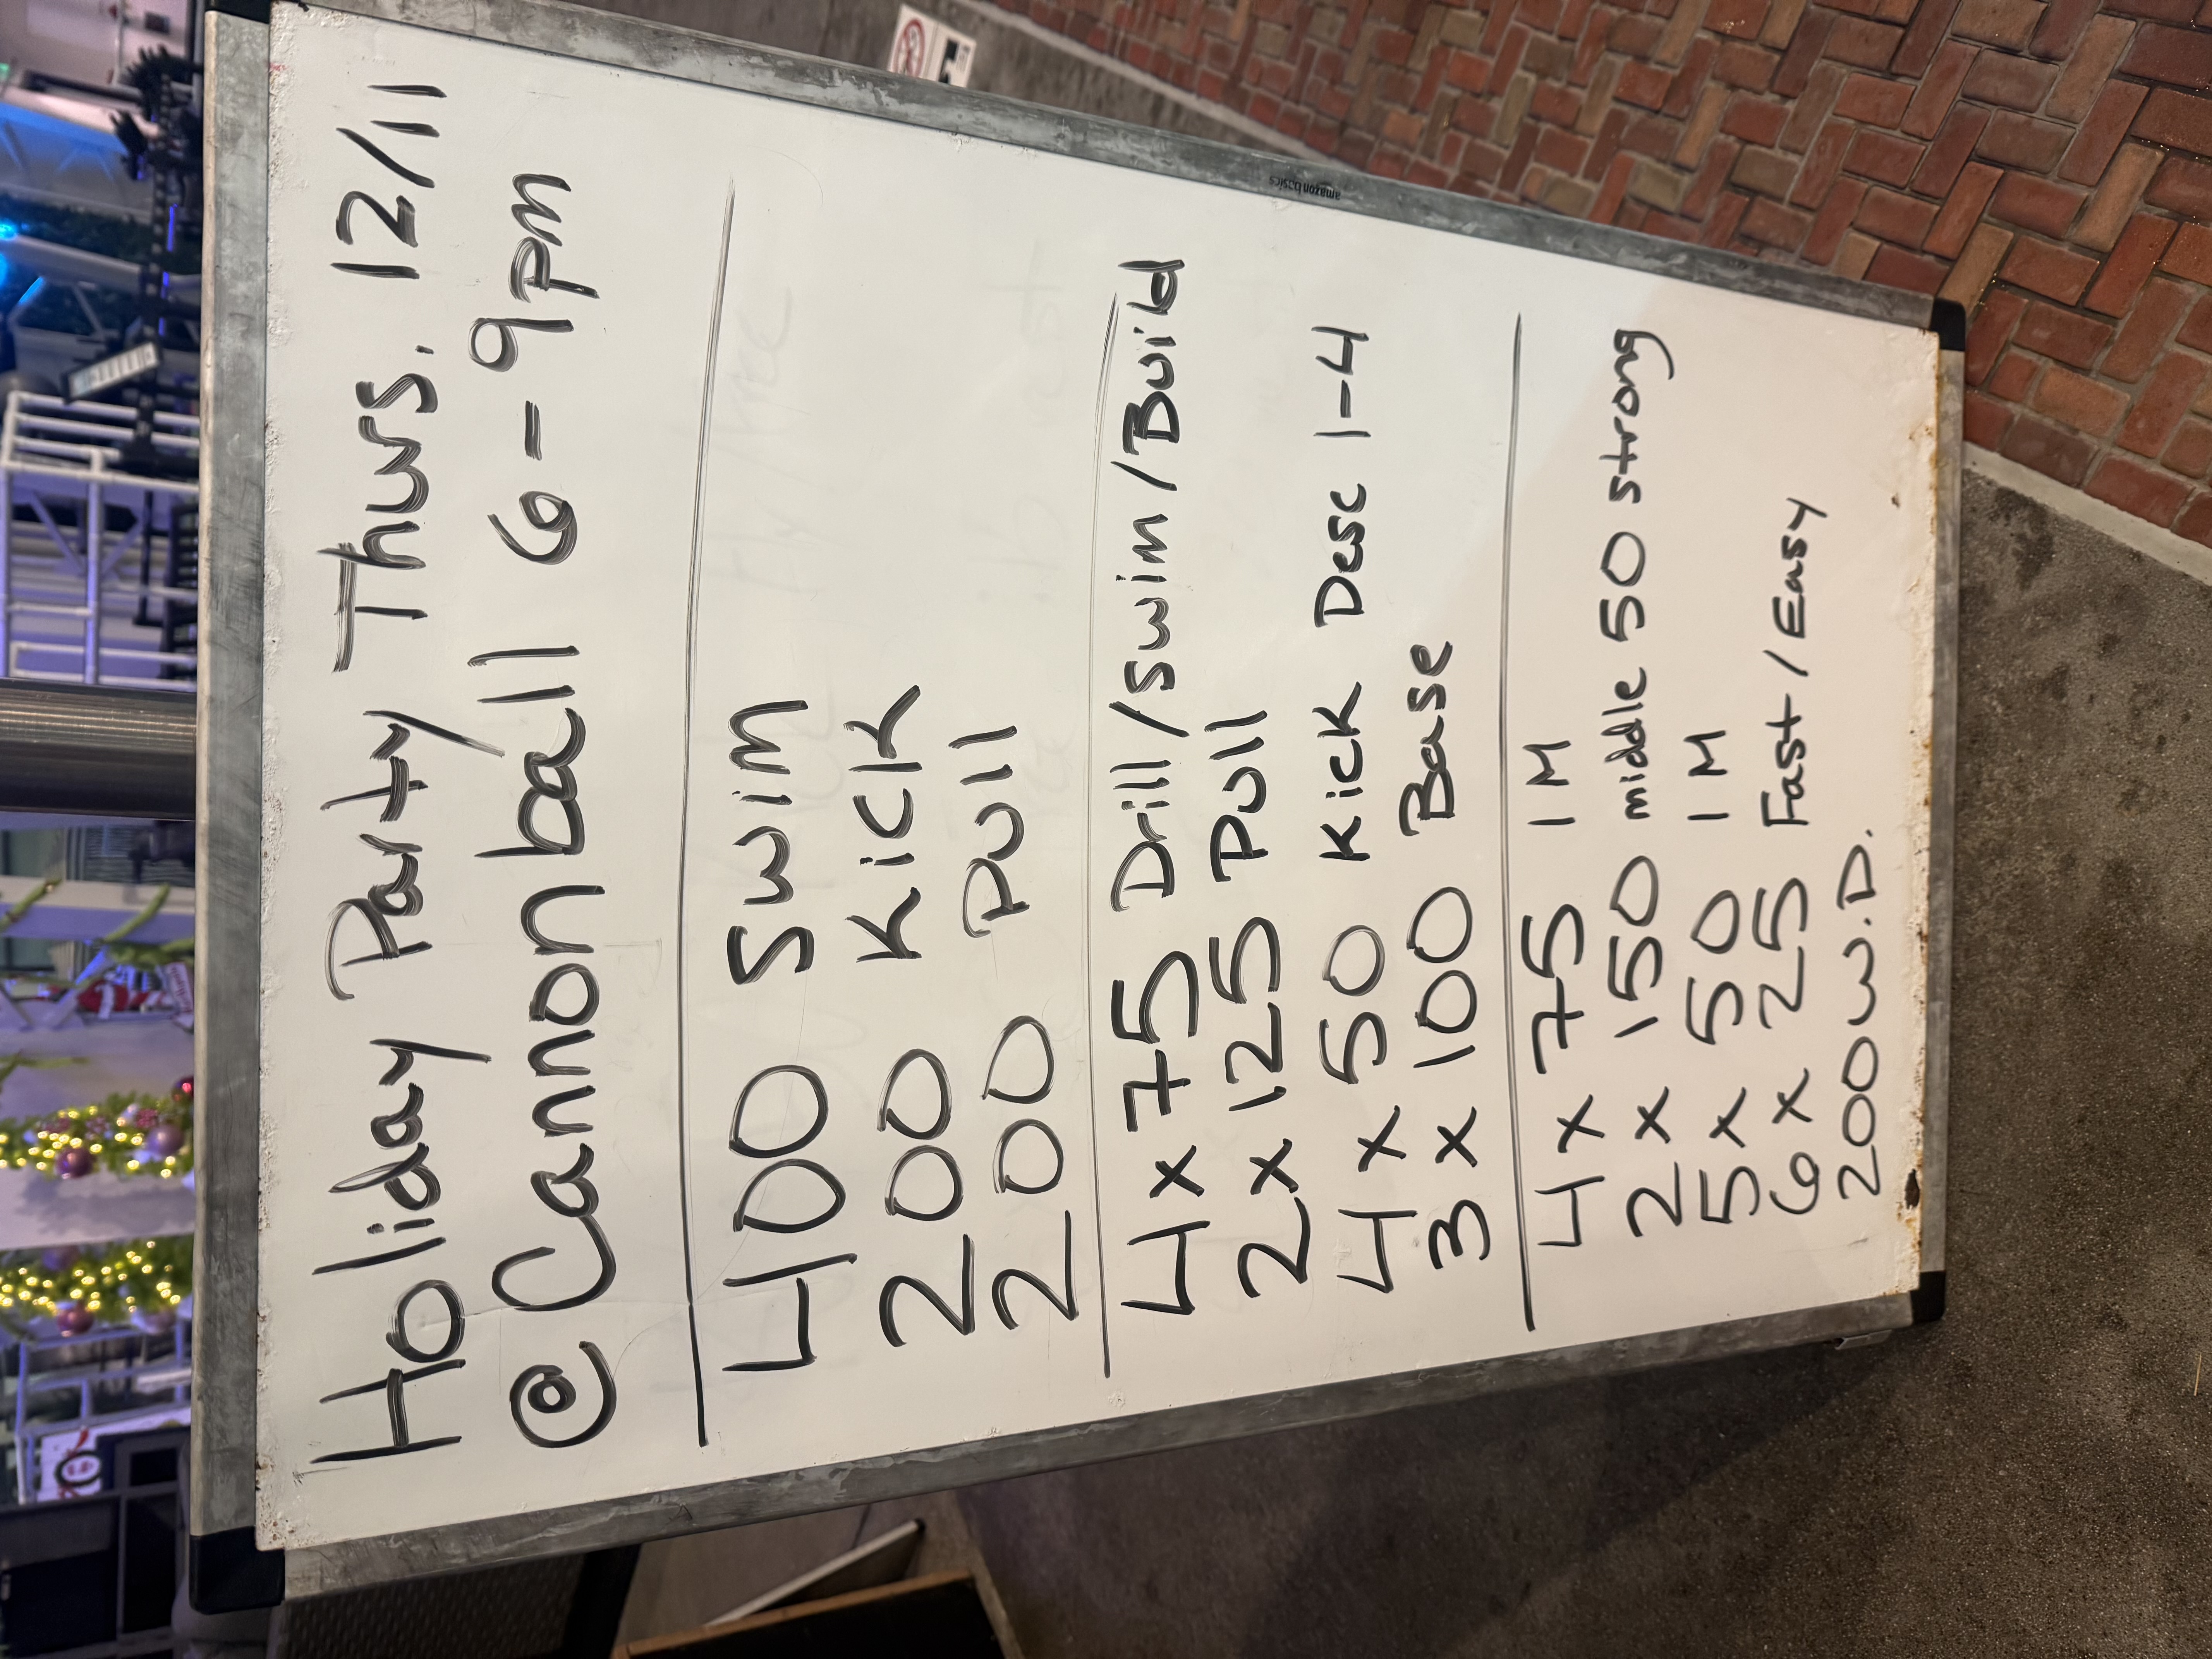 Holiday Party Thurs. 12/11
@ Cannonball 6-9pm
400 Swim
200 Kick
200 Pull
4 x 75 Drill/Swim/Build
2 x 125 Pull
4 x 50 Kick Desc 1-4
3 x 100 Base
4 x 75 IM
2 x 150 middle 50 strong
5 x 50 IM
6 x 25 Fast/Easy
200 W.D.
amazon basics